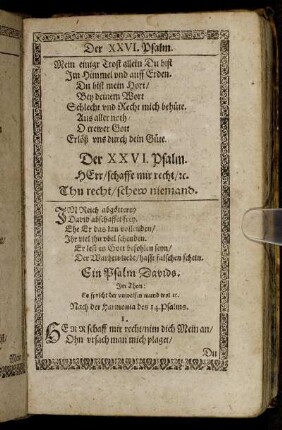 Der XXVI. Psalm.
Mein einigr Trost allein Du bist
Im Himmel vnd auff Erden.
Du bist mein Hort/
Bey deinem Wort
Schlecht vnd Recht mich behüte.
Aus aller noth
O trewer Gott
Erlöß vns durch dein Güte.
Der XXVI. Psalm.
HErr/schaffe mir recht/ꝛc.
Thu recht/schew niemand.
IM Reich abgötterey
David abschaffet frey.
Ehe Er das kan
Ihr viel jhn vbel schenden.
Er lest es Gott befohlen seyn/
Der Warheit liebt/hasst falschen schein.
Ein Psalm Davids.
Im Thon:
Es spricht der wol ꝛc.
Nach der Harmonia des 14. Psalms.
1.
HERR schaff mir recht/nim dich Mein an/
Ohn vrsach man mich plaget/
Du